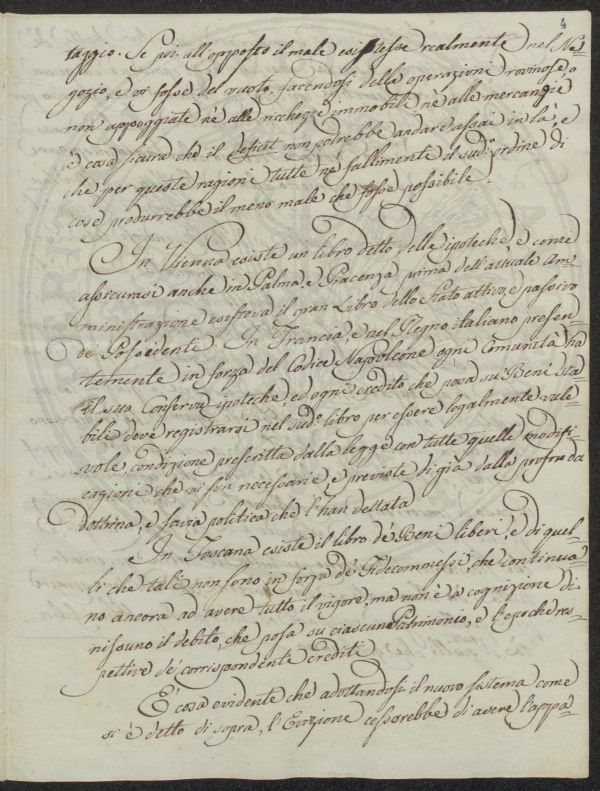 4
taggio. Se poi all'opposto il male esistesse realmente nel Ne=
gozio, e vi fosse del vuoto, facendosi delle operazioni rovinose, o
non appoggiate nè alle ricchezze immobili, nè alle mercanzie
è cosa sicura che il deficit non potrebbe andare assai in là, e
che per queste ragioni tutte ne' fallimenti il sud.° ordine di
cose produrrebbe il meno male che fosse possibile.
In Vienna esiste un libro detto delle ipoteche, e come
assicurasi anche in Parma, e Piacenza prima dell'attuale Am=
ministrazione esisteva il gran Libro dello Stato attivo, e passivo
de' Possidenti. In Francia, e nel Regno italiano presen=
temente in forza del Codice Napoleone ogni Comunità ha
il suo Conserva ipoteche ed ogni credito che posa su Beni sta=
bili deve registrarsi nel sud.° libro per essere legalmente vale=
vole, condizione prescritta dalla legge con tutte quelle modifi=
cazioni che vi son necessarie, e previste di già dalla profonda
dottrina, e savia politica che l'han dettata.
In Toscana esiste il libro de' Beni liberi, e di quel=
li che tali non sono in forza de' Fidecommessi, che continua=
no ancora ad avere tutto il vigore, ma non è a cognizione di
nissuno il debito, che posa su ciascun Patrimonio, e l'epoche res=
pettive de' corrispondenti crediti.
È cosa evidente che adottandosi il nuovo sistema come
si è detto di sopra, l'Evizione cesserebbe di avere l'appa=